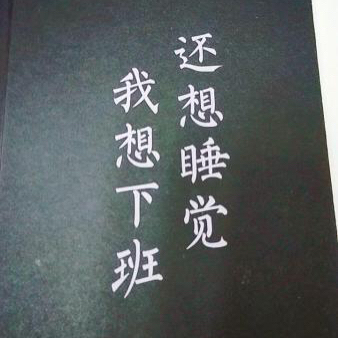 还想睡觉
我想下班